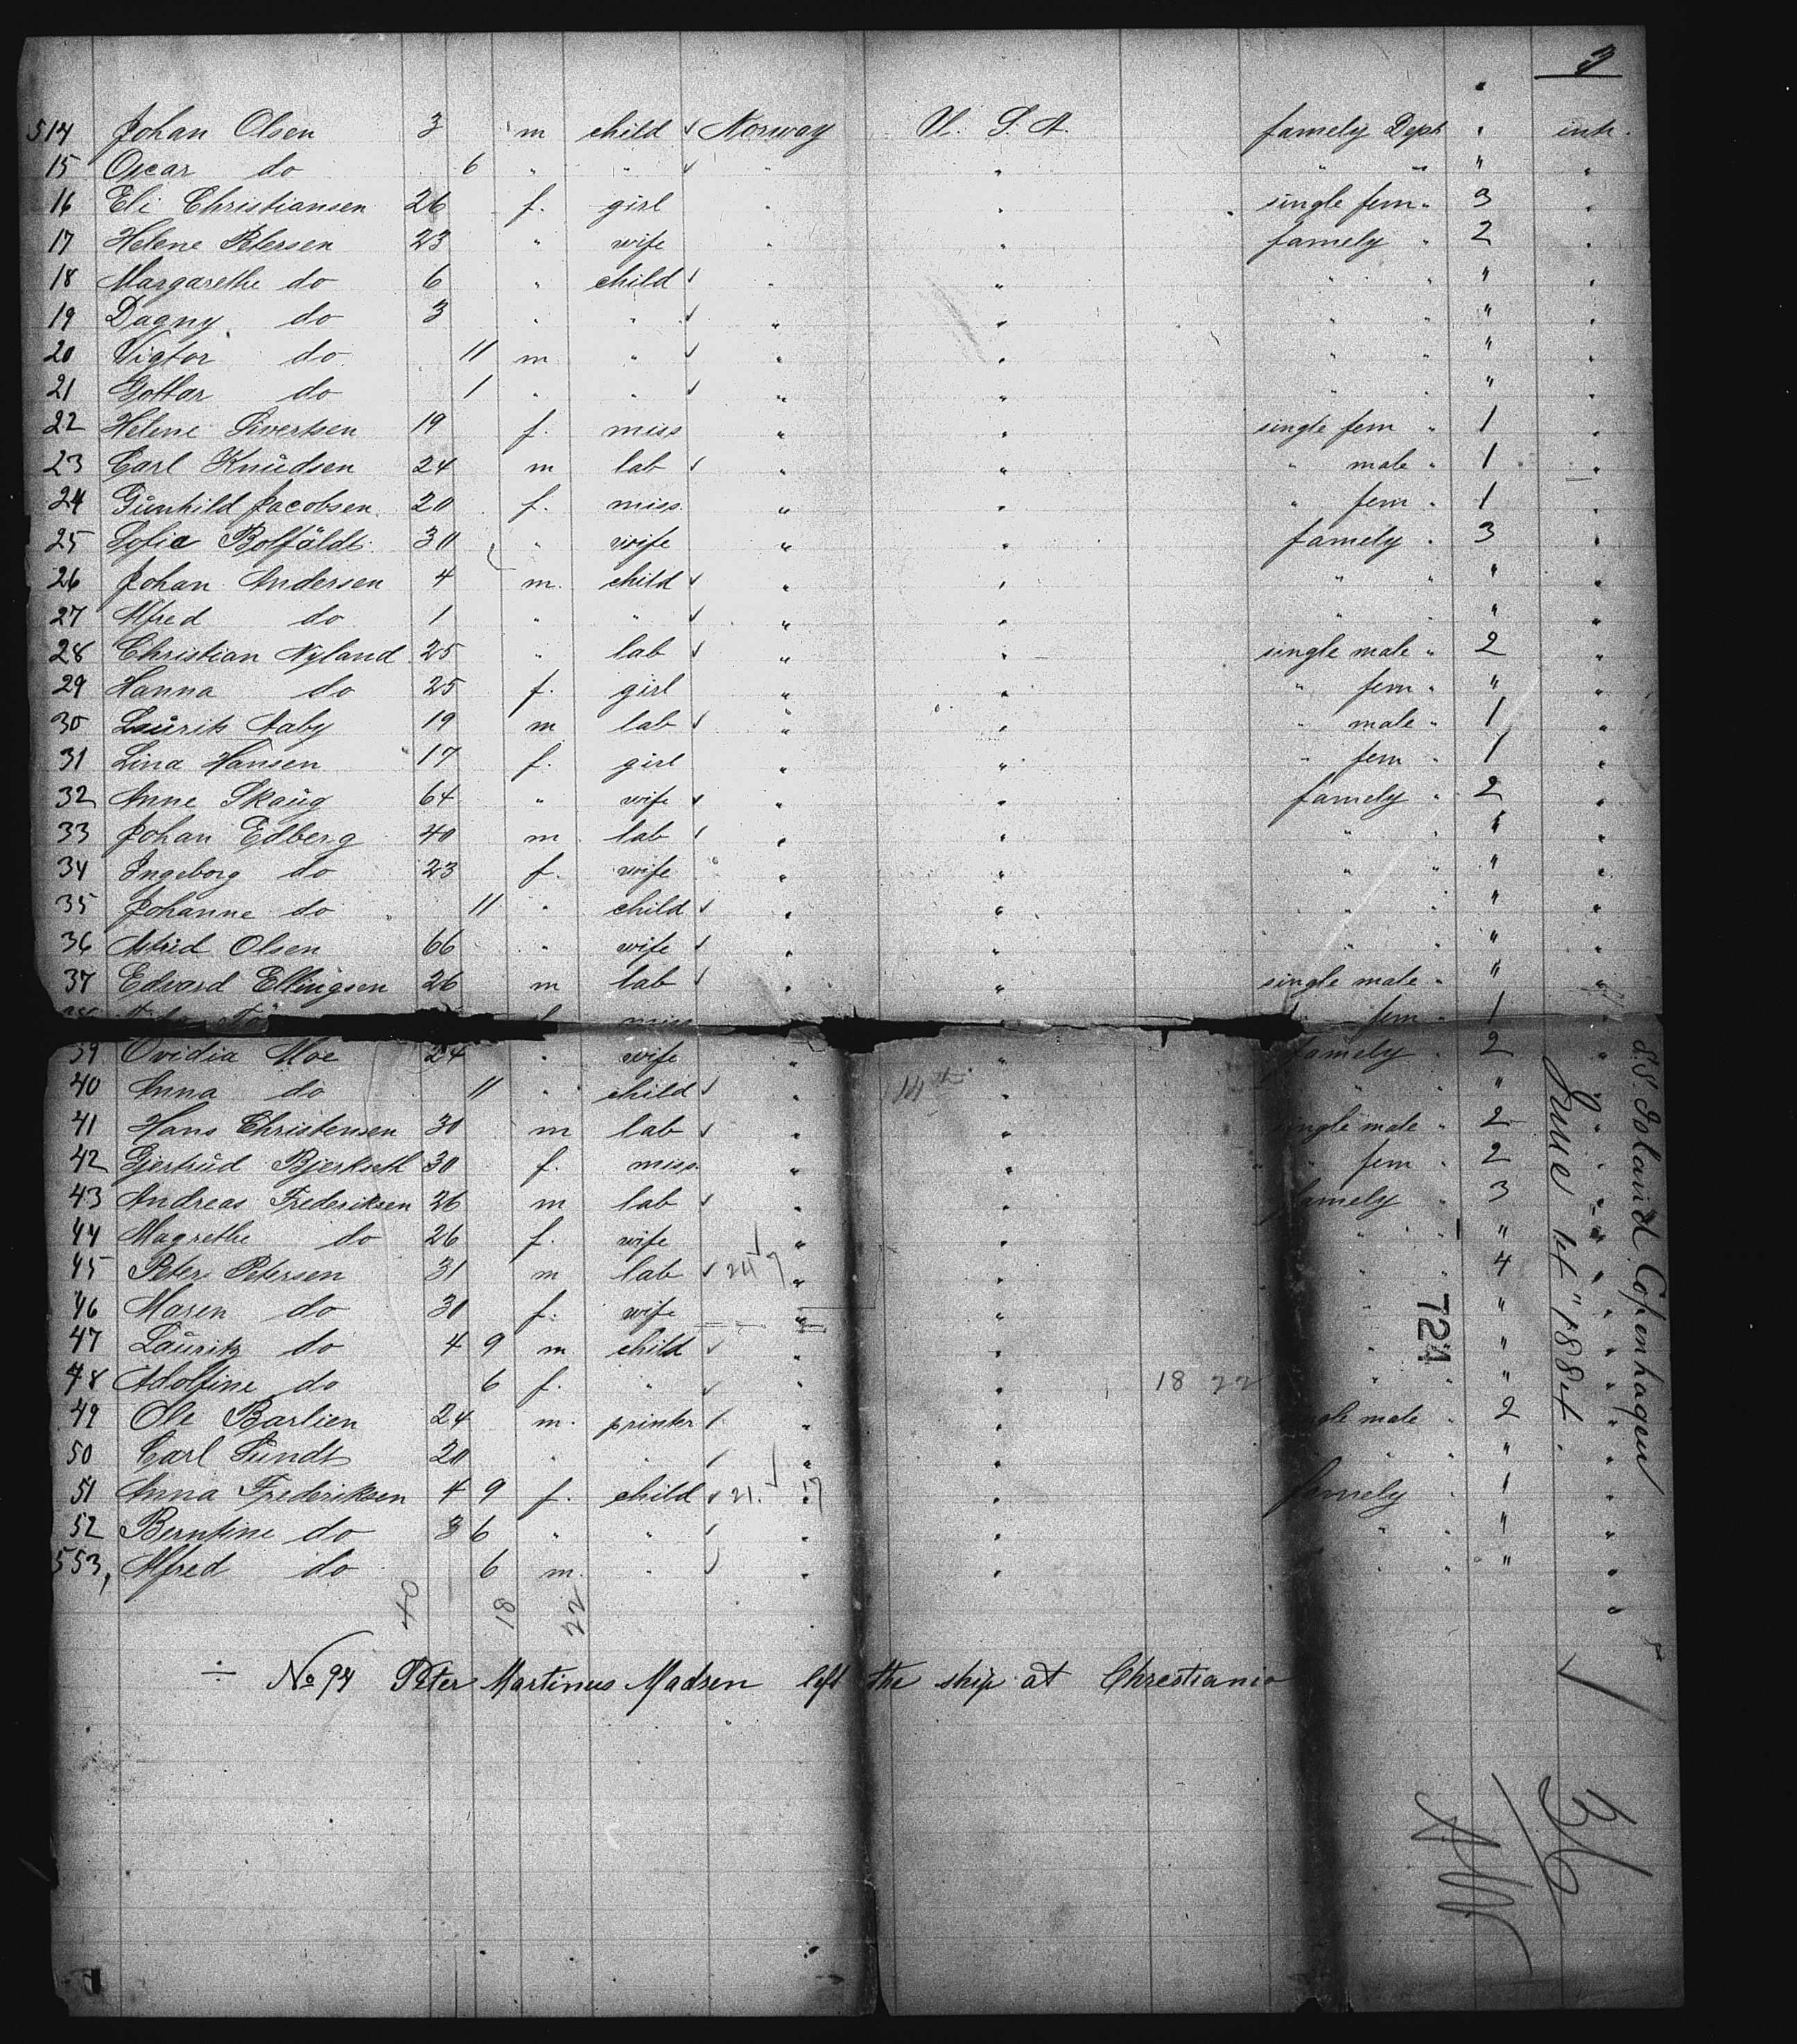 3
514 Johan Olsen 3 m child ✓ Norway U. S. A. famely Dept " intr.
15 Oscar do 6 " " ✓ " " " " " "
16 Eli Christiansen 26 f. girl " " single fem " 3 "
17 Helene Petersen 23 " wife " " famely " 2 "
18 Margarethe do 6 " child ✓ " " " " " "
19 Dagny do 3 " " ✓ " " " " " "
20 Vigtor do 11 m " ✓ " " " " " "
21 Gottar do 1 " " ✓ " " " " " "
22 Helene Sivertsen 19 f. miss " " single fem " 1 "
23 Carl Knudsen 24 m lab ✓ " " " male " 1 "
24 Gunhild Jacobsen 20 f. miss " " " fem " 1 "
25 Sofie Bolfäldt 30 " wife " " famely " 3 "
26 Johan Andersen 4 m. child ✓ " " " " " "
27 Alfred do 1 " " ✓ " " " " " "
28 Christian Nyland 25 " lab ✓ " " single male " 2 "
29 Hanna do 25 f. girl " " " fem " " "
30 Lauritz Aaby 19 m lab ✓ " " " male " 1 "
31 Lina Hansen 17 f. girl " " " fem " 1 "
32 Anne Skaug 64 " wife ✓ " " famely " 2 "
33 Johan Edberg 40 m lab ✓ " " " " " "
34 Ingeborg do 23 f. wife " " " " " "
35 Johanne do 11 " child ✓ " " " " " "
36 Astrid Olsen 66 " wife ✓ " " " " " "
37 Edvard Ellingsen 26 m lab ✓ " " single male " " "
miss fem " 1 "
39 Ovidia Moe 24 " wife " " famely " 2 "
40 Anna do 11 " child ✓ " 14th " " " " "
41 Hans Christensen 30 m lab ✓ " " single male " 2 "
42 Gjertrud Bjerkseth 30 f. miss " " " fem " 2 "
43 Andreas Frederiksen 26 m lab ✓ " " famely " 3 "
44 Magrethe do 26 f. wife " " " " " "
45 Peter Petersen 31 m lab ✓ " " " " 4 "
46 Maren do 30 f. wife " " " " " "
47 Lauritz do 4 9 m child ✓ " " " " " "
48 Adolfine do 6 f. " ✓ " " 18 22 " " " "
49 Ole Barlien 24 m. printer ✓ " " single male " 2 "
50 Carl Sundt 20 " " ✓ " " " " " "
51 Anna Frederiksen 4 9 f. child ✓ 21. " " famely " 1 "
52 Berntine do 3 6 " " ✓ " " " " " "
553, Alfred do 6 m. " ✓ " " " " " "
40 18 22
÷ No 94 Peter Martinus Madsen left the ship at Chrestiania
S.S. Island Copenhagen
June 14" 1884.
721
36